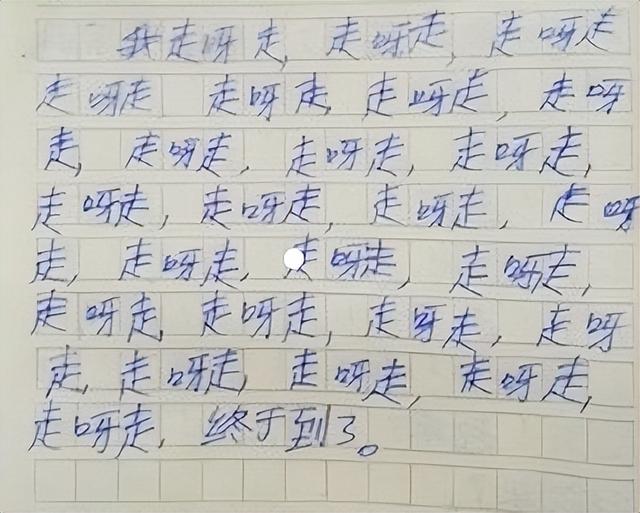 我走呀走，走呀走，走呀走
走呀走 走呀走，走呀走，走呀
走，走呀走，走呀走，走呀走，
走呀走，走呀走，走呀走，走呀
走，走呀走，走呀走，走呀走，
走呀走，走呀走，走呀走，走呀
走，走呀走，走呀走，走呀走，
走呀走，终于到了。